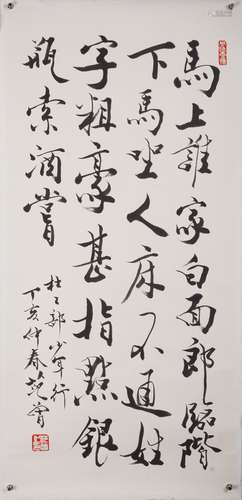 馬上誰家白面郎臨階
下馬坐人床不通姓
字粗豪甚指點銀
瓶索酒嘗
杜工部少年行
丁亥仲春范曾